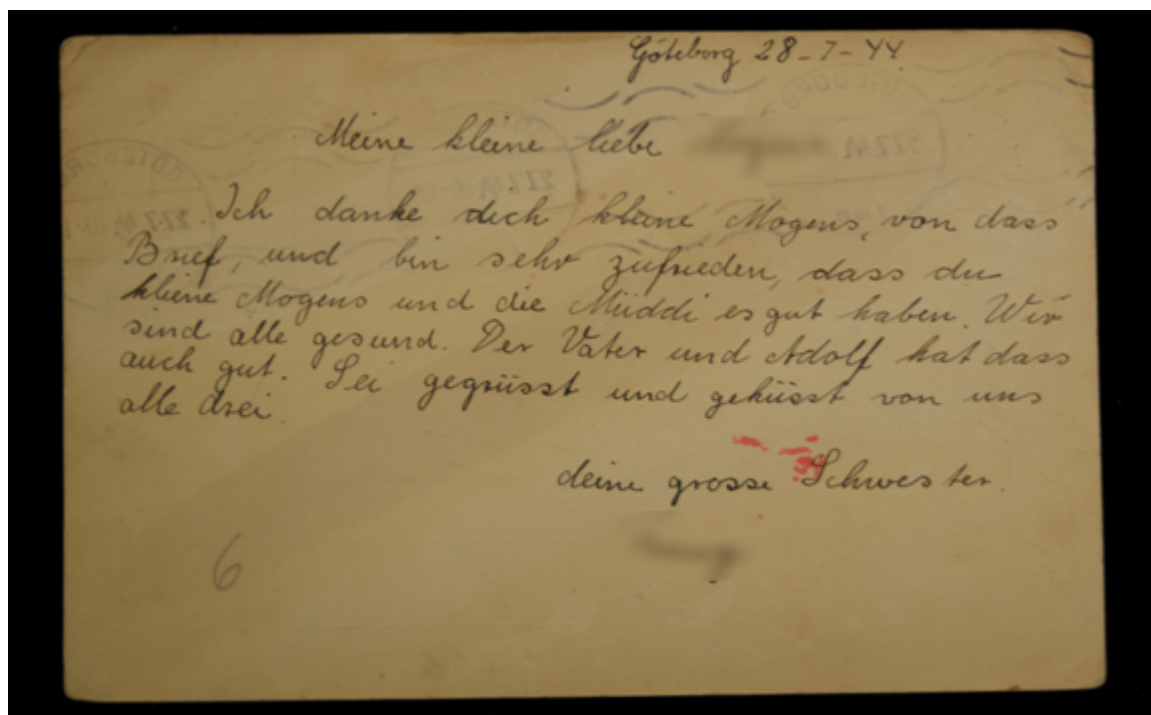 Göteborg 28-7-44
Meine kleine liebe
Ich danke dich kleine Mogens, von dass
Brief, und bin sehr zufrieden, dass du
kliene Mogens und die Müddi es gut haben. Wir
sind alle gesund. Der Vater und Adolf hat dass
auch gut. Sei gegrüsst und geküsst von uns
alle drei.
deine grosse Schwester.
6